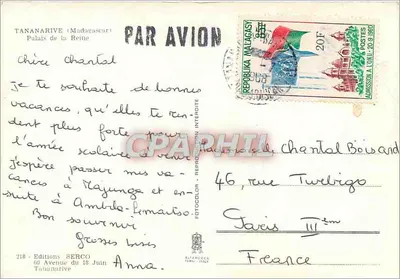 TANANARIVE (Madagascar)
Palais de la Reine
PAR AVION
REPOBLIKA MALAGASY
65F
20F
POSTES
ADMISSION A L'O.N.U. 20-9-1960
Chère Chantal
Je te souhaite de bonnes
vacances, qu'elles te ren-
dent plus forte pour
l'année scolaire à venir
J'espère passer mes va-
cances à Majunga et en-
suite à
Bon souvenir
Grosses bises
Anna.
Mademoiselle Chantal Boisard
46, rue Turbigo
Paris IIIèm
France
CPAPHIL
FOTOCOLOR - REPRODUCTION INTERDITE
218 - Editions SERCO
60 Avenue du 18 Juin
Tananarive